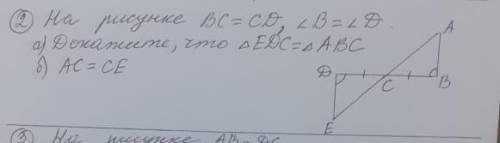 ② На рисунке BC = CD, ∠B = ∠D.
а) Докажите, что △EDC = △ABC
б) AC = CE
A
D
C
B
E
③ На рисунке AB = DC